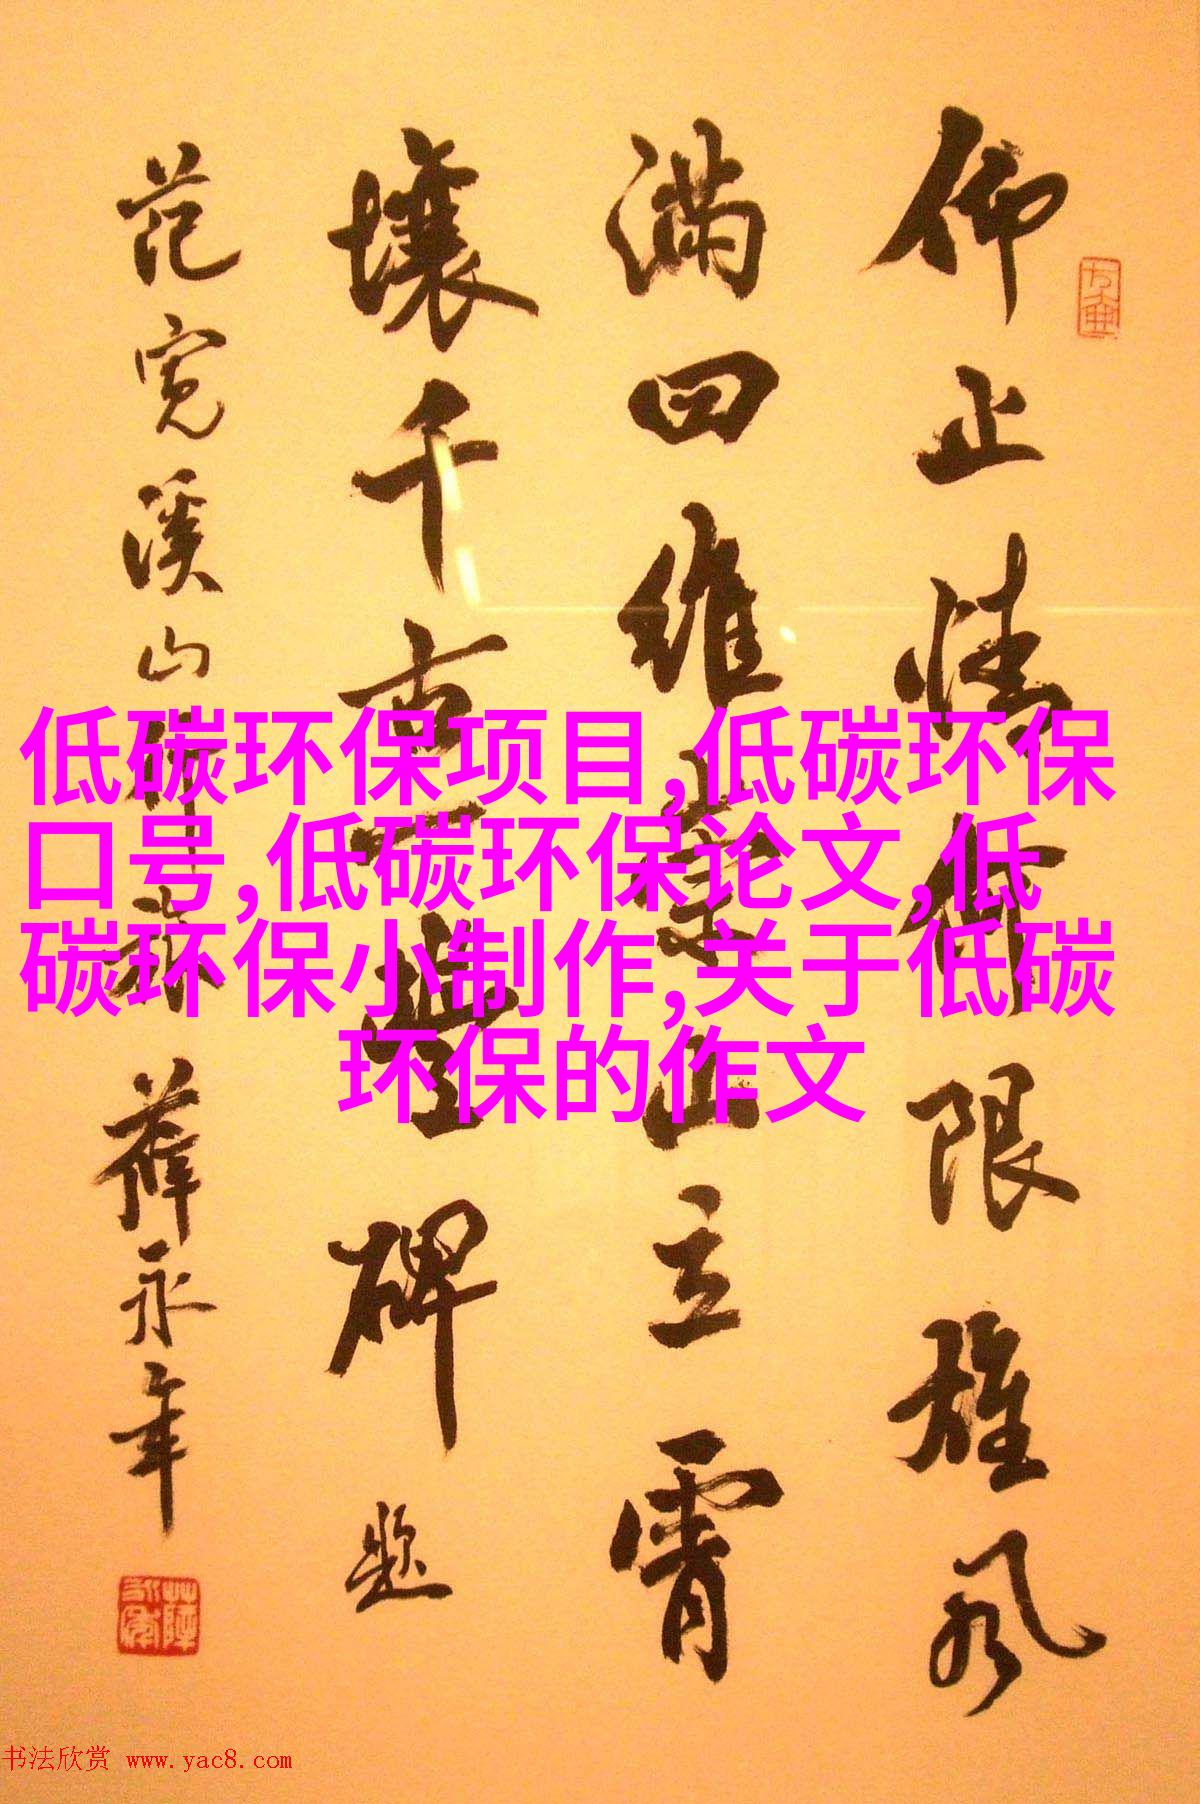 仰止情何限雄风
满四维崇山立霄
壤千古一丰碑题
范宽溪山行旅 薛永年
低碳环保项目,低碳环保
口号,低碳环保论文,低
碳环保小制作,关于低碳
环保的作文
书法欣赏 www.yac8.com